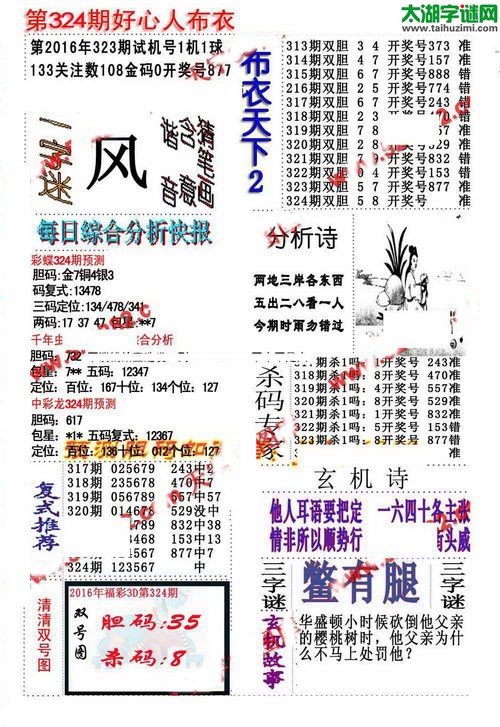 第324期好心人布衣
太湖字谜网
www.taihuzimi.com
第2016年323期试机号1机1球
133关注数108金码0开奖号877
风
猜笔画
含意
谐音
每日综合分析快报
彩蝶324期预测
胆码:金7铜4银3
码复式:13478
三码定位:134/478/341
两码:17 37 47 包星:**7
千年虫
合分析
胆码: 732
包星: 7** 五码: 12347
定位: 百位: 167十位: 134个位: 127
中彩龙324期预测
胆码: 617
包星: *1* 五码复式: 12367
定位: 百位: 136十位: 012个位: 127
复式推荐
317期 025679 243中2
318期 235678 470中
319期 056789 657中
320期 014678 529没中
789 832中
4568 153中
789 877中
324期 123567
清清双号图
2016年福彩3D第324期
双号图
胆码:35
杀码:8
布衣天下2
313期双胆 3 4 开奖号373 准
314期双胆 5 7 开奖号165 准
315期双胆 6 8 开奖号888 准
316期双胆 6 7 开奖号774 准
317期双胆 2 4 开奖号243 准
318期双胆 3 8
319期双胆 7 8
320期双胆
321期双胆
322期双胆 3 4 开奖号153 准
323期双胆 5 7 开奖号877 准
324期双胆 5 8 开奖号 准
分析诗
两地三岸各东西
五出二八看一人
今期时雨勿错过
杀码专家
317期杀1吗: 1开奖号 243准
318期杀1吗: 8开奖号 470准
319期杀1吗: 4开奖号 657准
320期杀1吗: 8开奖号 529准
321期杀1吗: 4开奖号 832准
322期杀1吗: 5开奖号 153错
323期杀1吗: 8开奖号 877错
玄机诗
他人耳语要把定 一六四十各主张
情非所以顺势行
有头威
三字谜
鳖有腿
三字谜
玄机故事
华盛顿小时候砍倒他父亲
的樱桃树时，他父亲为什
么不马上处罚他?